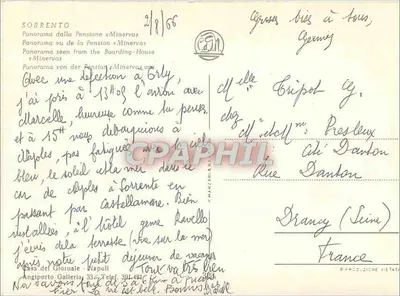 SORRENTO
Panorama dalla Pensione «Minerva»
Panorama vu de la Pension «Minerva»
Panorama seen from the Boarding-House
«Minerva»
Panorama von der Pension «Minerva»
2/8/66
Avec une defection à Orly,
j'ai pris à 13h05 l'avion avec
Marcelle heureuse comme tu penses
et à 15h nous debarquions à
Naples, pas fatiguées avec le ciel
bleu, le soleil et la mer dans le
car de Naples à Sorrente en
passant par Castellamare. Bien
installées, à l'hôtel genre Ravello
j'écris de la terrasse (vue sur la mer)
après notre petit déjeuner de vacances
Tout va très bien
Casa del Giornale - Napoli
Angiporto Galleria
Grosses bises à tous,
Melle Tripot G.
chez
M. et Mme Presleux
Cité Danton
Rue Danton
Drancy (Seine)
France
CARPHIL